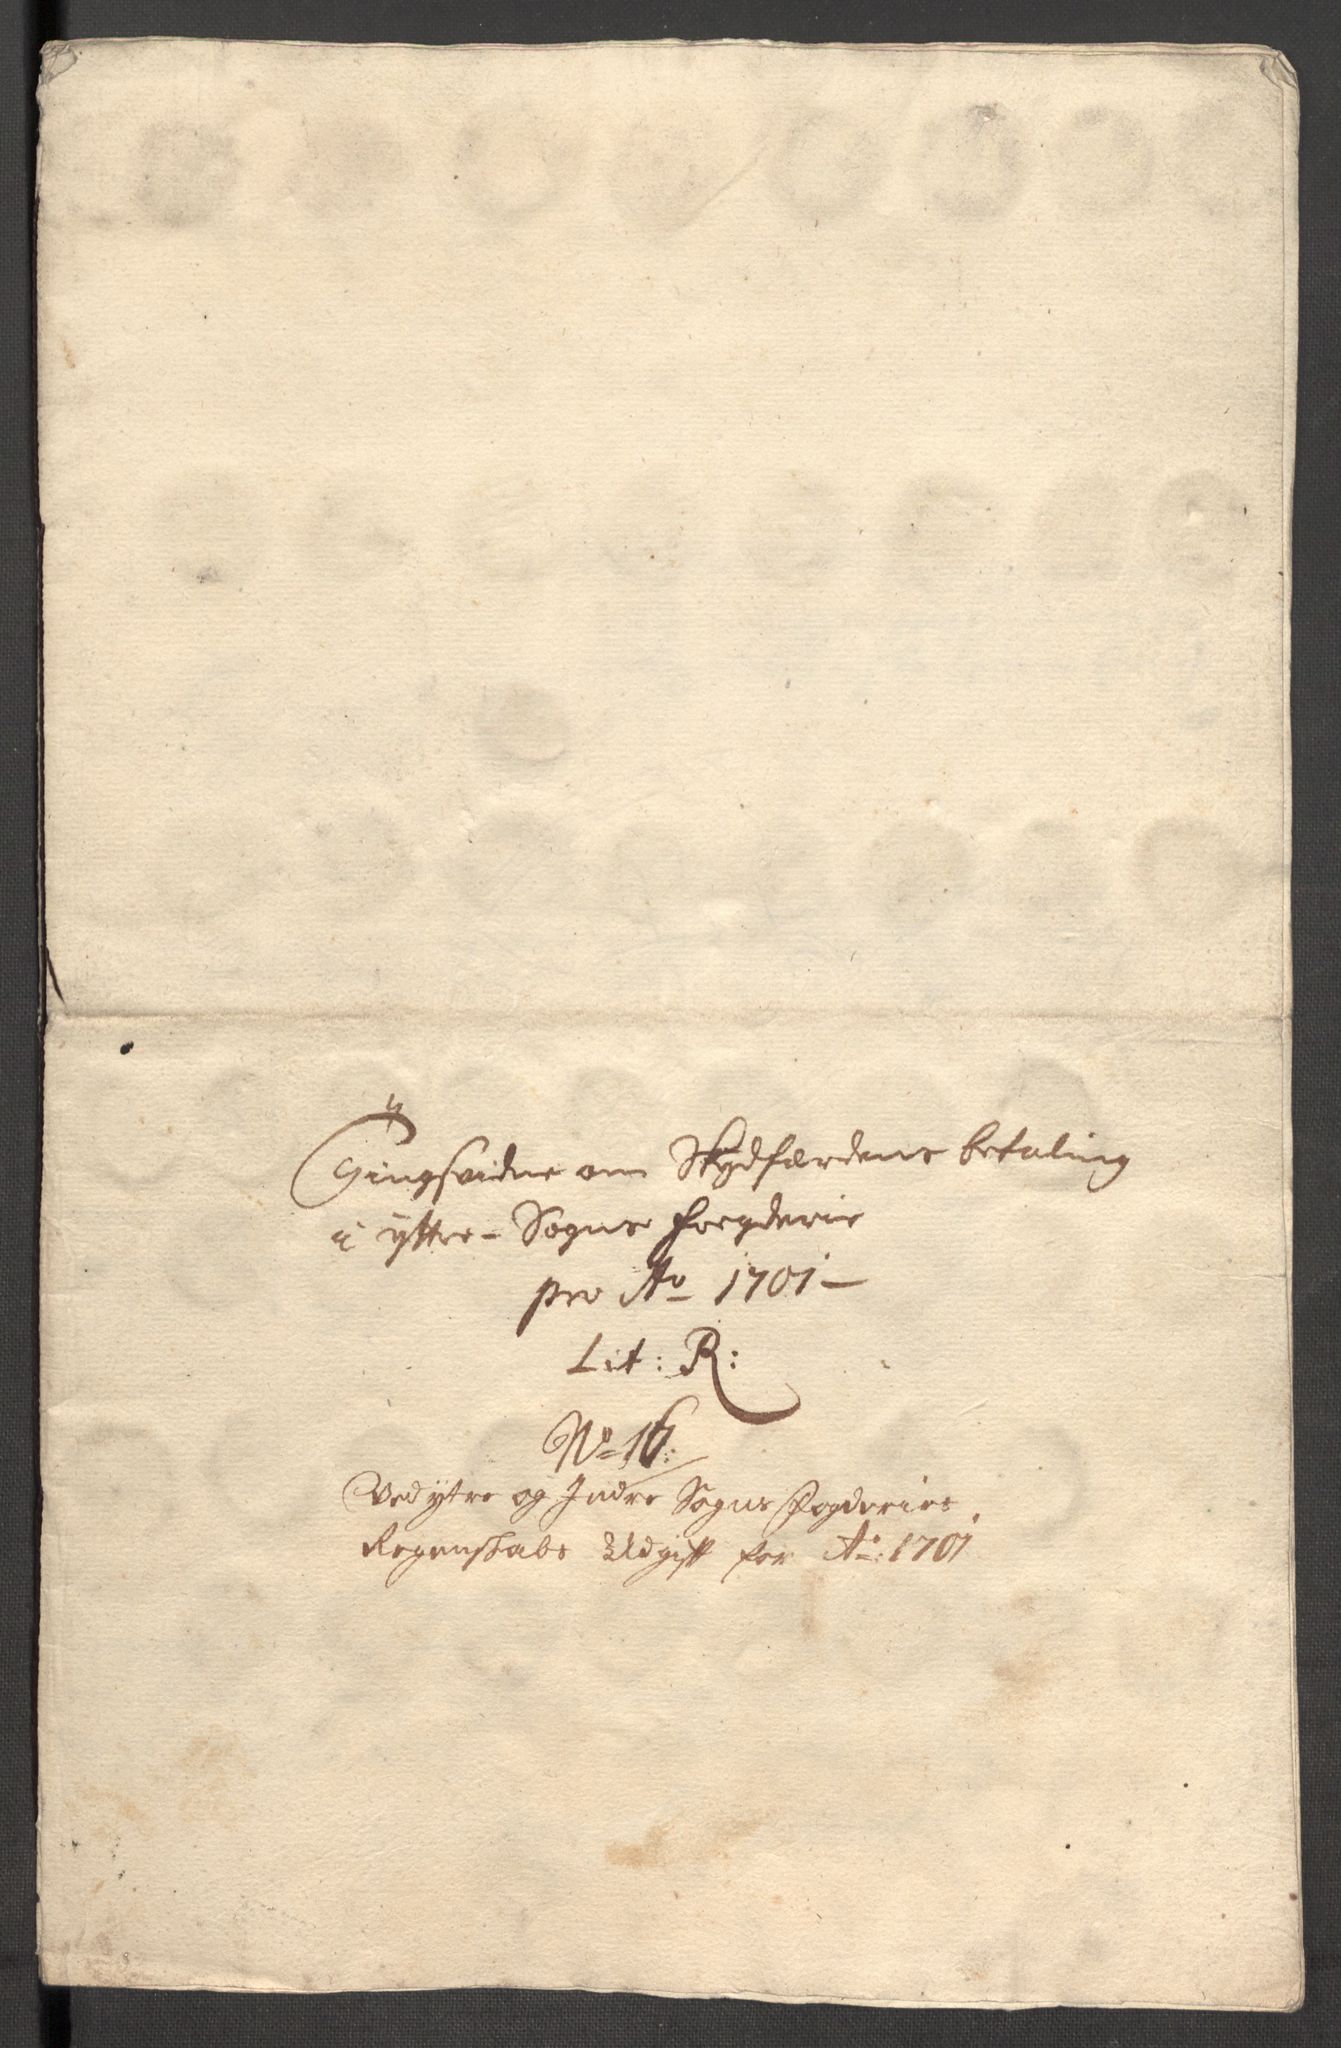 Tingsvidne om Skydsfærdens betaling
i yttre- Sogns Foegderie
pro Ao 1701-
Lit: R:
No 16:
Ved ytre og Indre Sogns Fogderies
Regenskabs Udgift for Ao: 1701